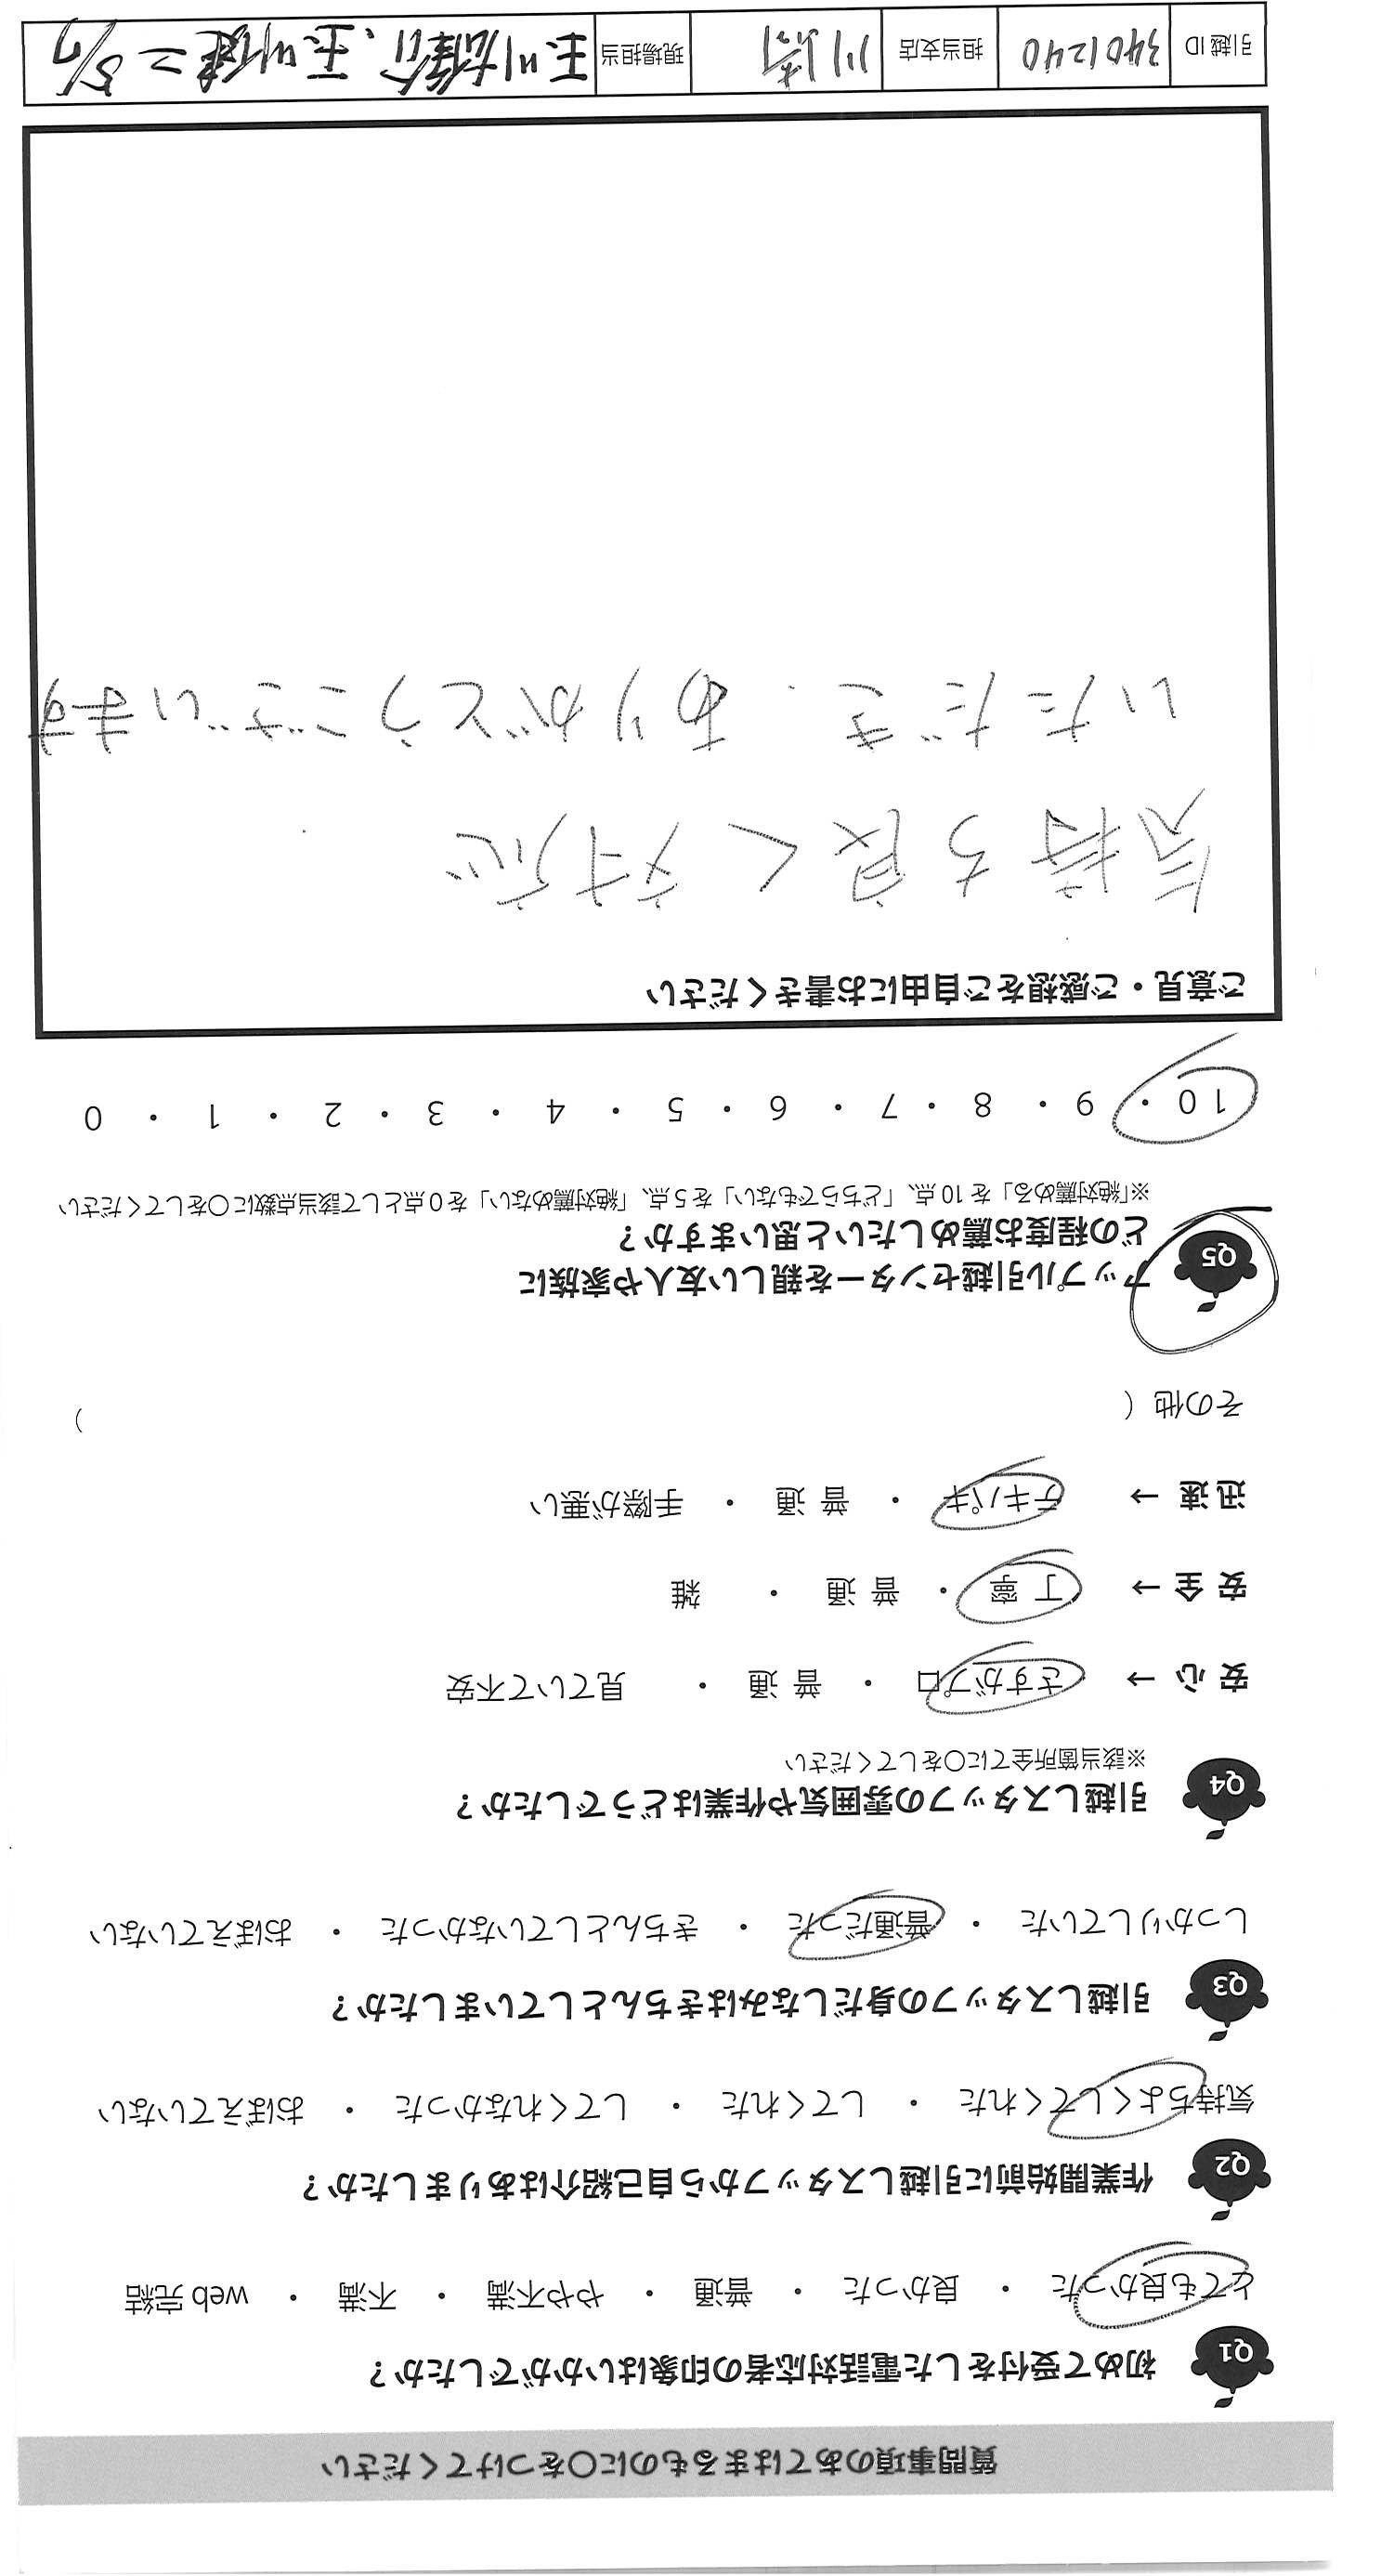 質問事項のあてはまるものに〇をつけてください
Q1 初めて受付をした電話対応者の印象はいかがでしたか？
とても良かった ・ 良かった ・ 普通 ・ やや不満 ・ 不満 ・ web 完結
Q2 作業開始前に引越しスタッフから自己紹介はありましたか？
気持ちよくしてくれた ・ してくれた ・ してくれなかった ・ おぼえていない
Q3 引越しスタッフの身だしなみはきちんとしていましたか？
しっかりしていた ・ 普通だった ・ きちんとしていなかった ・ おぼえていない
Q4 引越しスタッフの雰囲気や作業はどうでしたか？
※該当箇所全てに〇をしてください
安 心 → さすがプロ ・ 普 通 ・ 見ていて不安
安 全 → 丁 寧 ・ 普 通 ・ 雑
迅 速 → テキパキ ・ 普 通 ・ 手際が悪い
その他（ ）
Q5 アップル引越センターを親しい友人や家族に
どの程度お薦めしたいと思いますか？
※「絶対薦める」を 10 点、「どちらでもない」を 5 点、「絶対薦めない」を 0 点として該当点数に〇をしてください
10 ・ 9 ・ 8 ・ 7 ・ 6 ・ 5 ・ 4 ・ 3 ・ 2 ・ 1 ・ 0
ご意見・ご感想をご自由にお書きください
気持ち良く対応
いただき、ありがとうございます
引越 ID 3401240 担当支店 川崎 現場担当 玉川雄介、玉川健二 5/7